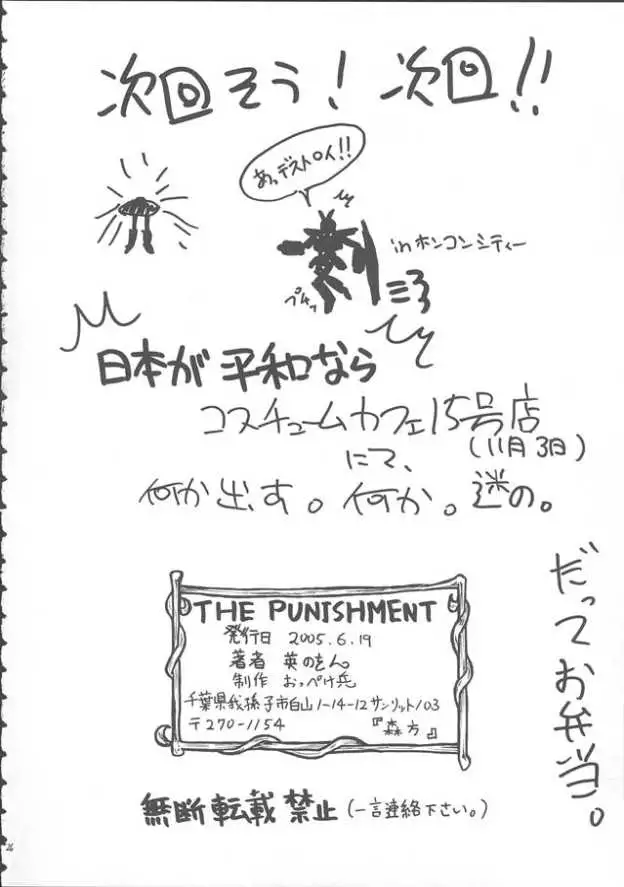 次回そう! 次回!!
あ、デストロイ!!
inホンコンシティー
プチッ
日本が平和なら
コスチュームカフェ15号店
(11月3日)
にて、
何か出す。何か。謎の。
だってお弁当。
THE PUNISHMENT
発行日 2005.6.19
著者 英のをん。
制作 おっぺけ兵
千葉県我孫子市白山1-14-12サンリット103
〒270-1154 『森方』
無断転載禁止(一言連絡下さい。)